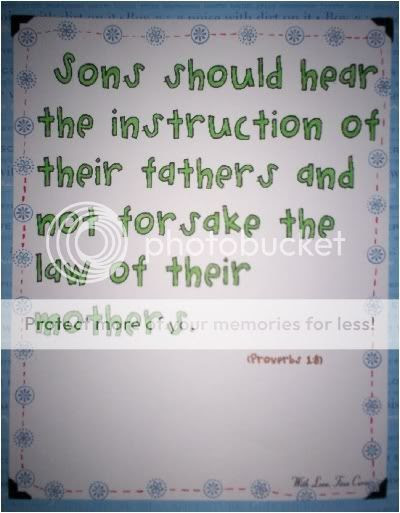 Sons should hear
the instruction of
their fathers and
not forsake the
law of their
mothers.
photobucket
Protect more of your memories for less!
(Proverbs 1:8)
With Love,